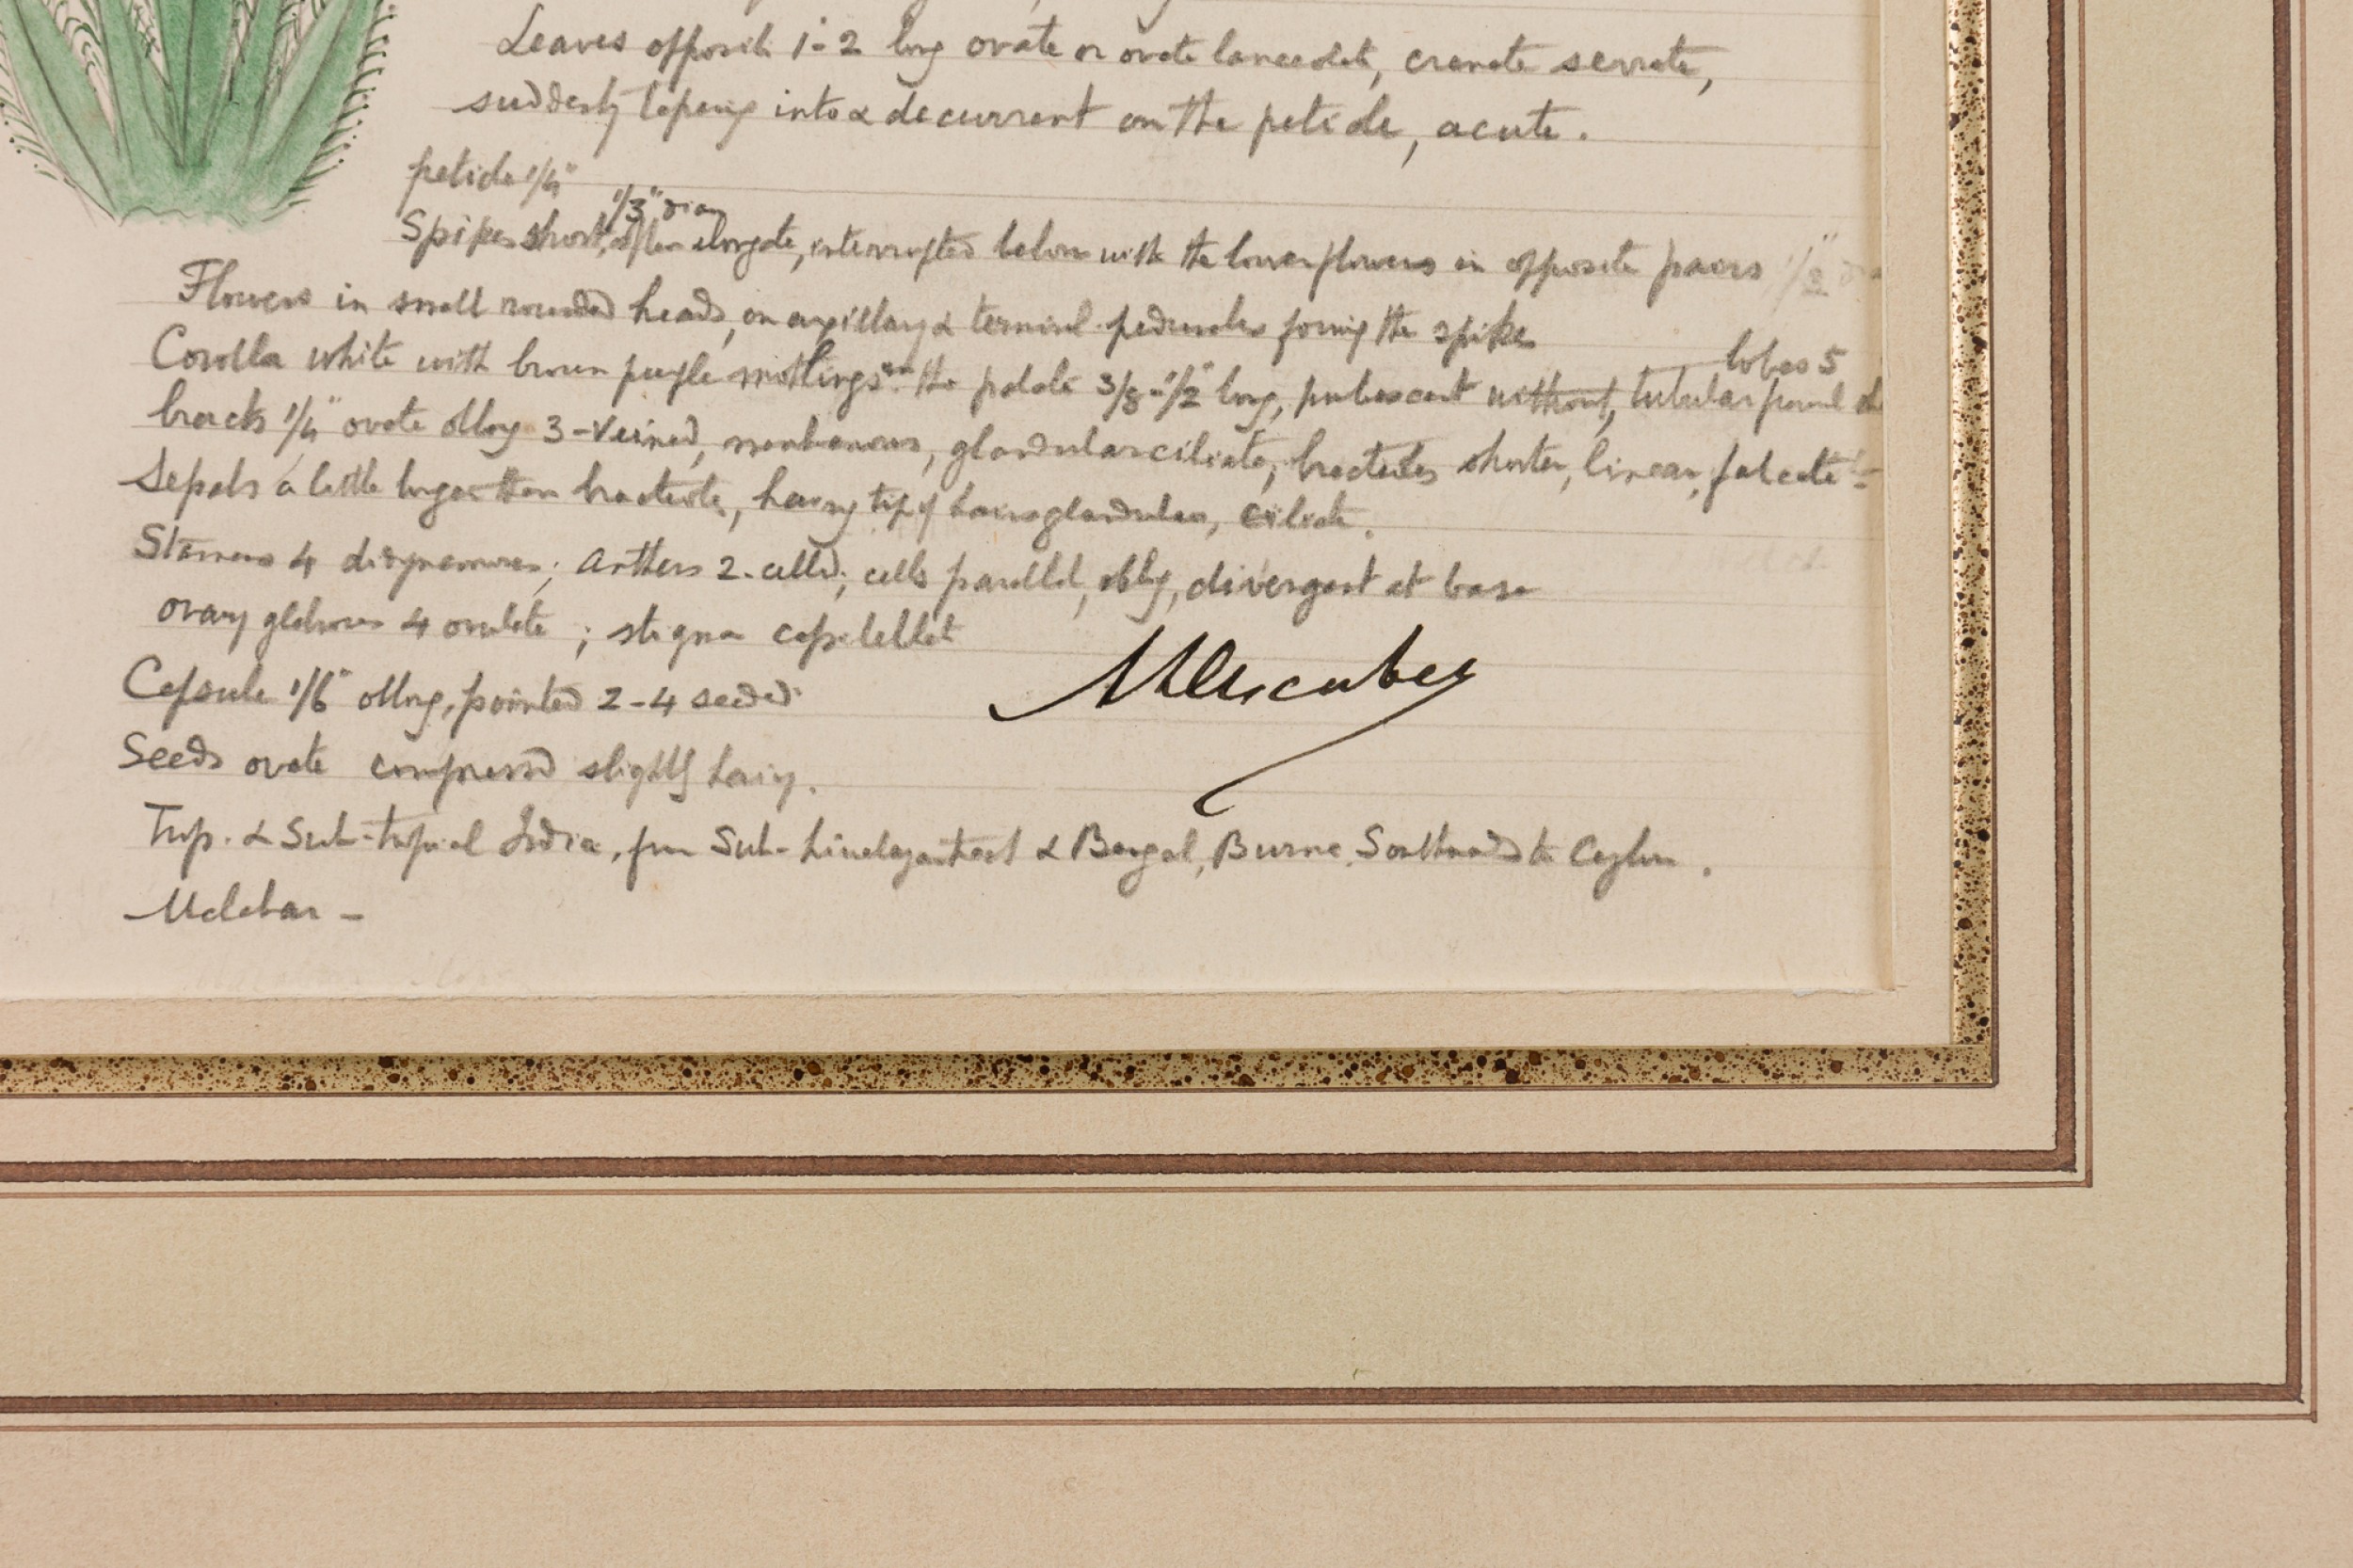 Leaves opposite 1-2 long ovate or ovate lanceolate, crenate serrate,
suddenly tapering into & decurrent on the petiole, acute.
petiole 1/4"
1/3" diam
Spikes short, often elongate, interrupted below with the lower flowers in opposite pairs 1/2"
Flowers in small rounded heads, on axillary & terminal peduncles forming the spike
lobes 5
Corolla white with brown purple mottlings on the palate 3/8-1/2" long, pubescent without, tubular
bracts 1/4" ovate oblong 3-veined, membranous, glandular ciliate, bracteoles shorter, linear, falcate -
Sepals a little longer than bracteole, hairy tip of hairs glandular, ciliate.
Stamens 4 didynamous; Anthers 2-celled; cells parallel, oblong, divergent at base
ovary glabrous 4 ovulate; stigma capitellate
Capsule 1/6" oblong, pointed 2-4 seeded
Seeds ovate compressed slightly hairy.
Trop. & Sub-tropical India, from Sub-himalayan tract & Bengal, Burma, Southwards to Ceylon.
Malabar -